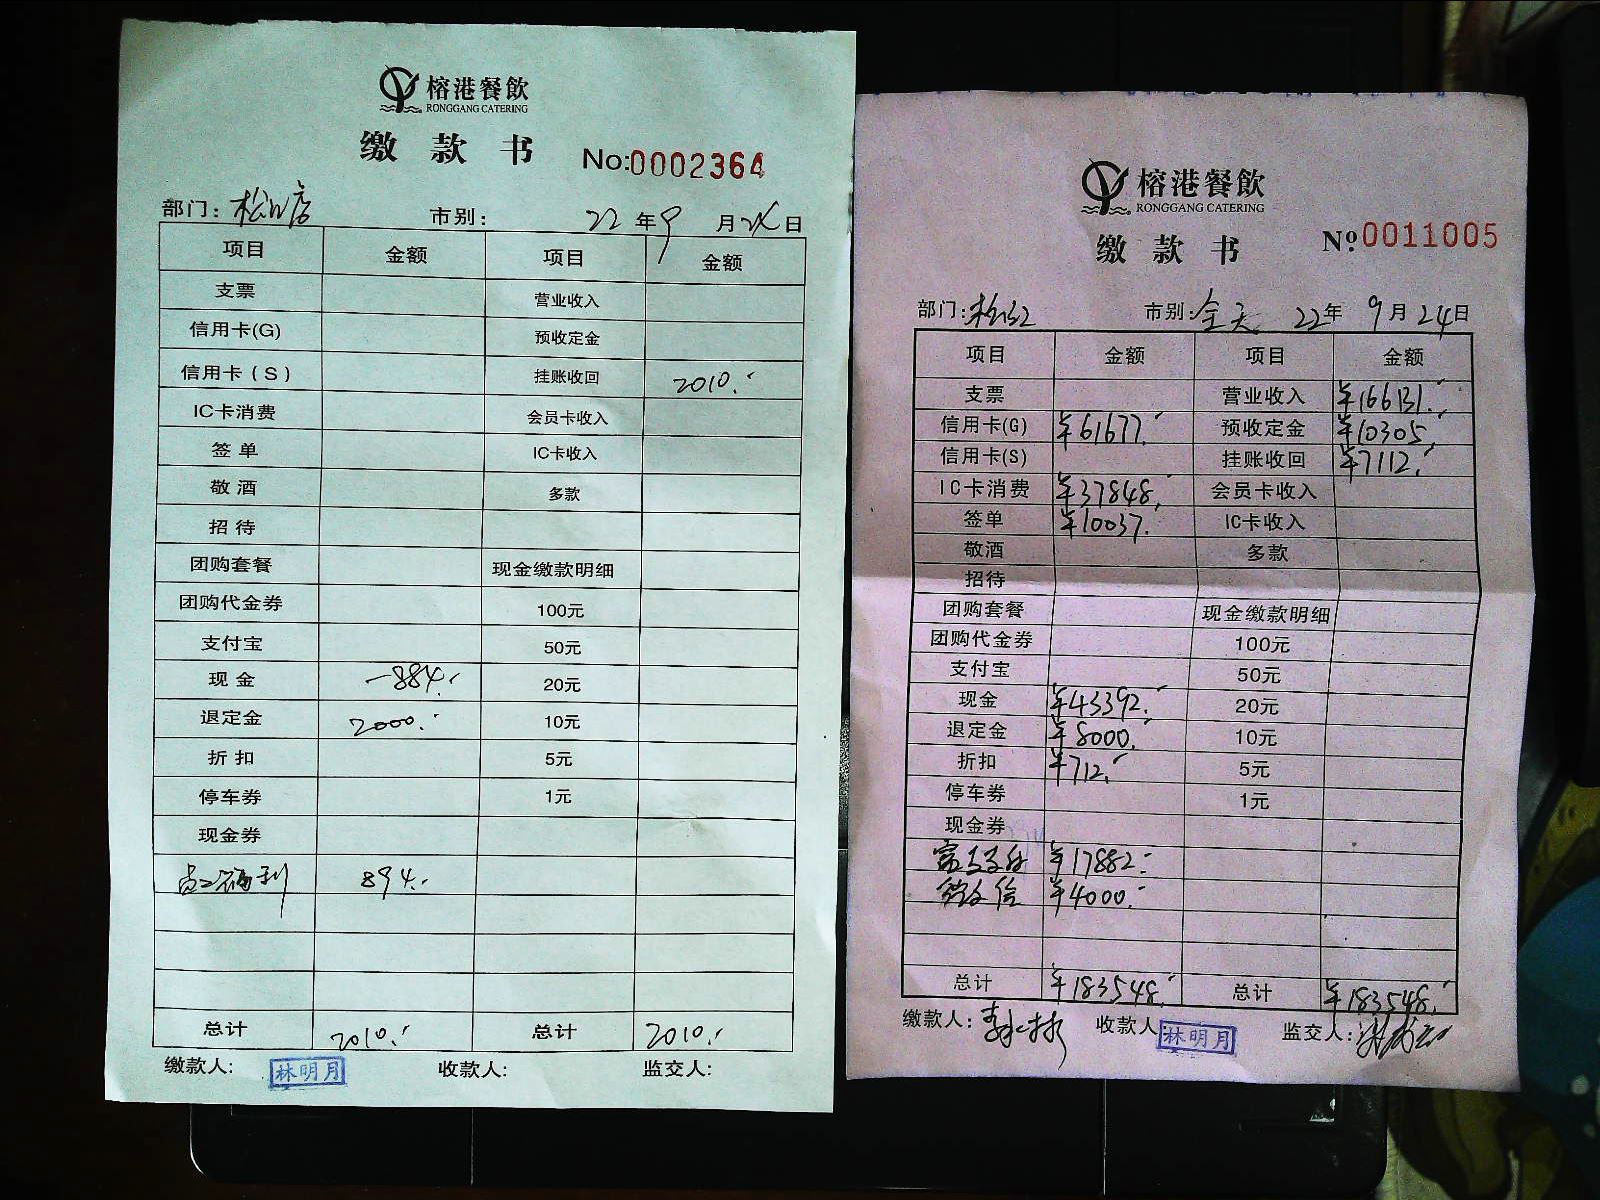 榕港餐飲
RONGGANG CATERING
缴款书 No:0002364
部门:松江店 市别: 22年9月24日
项目 金额 项目 金额
支票 营业收入
信用卡(G) 预收定金
信用卡(S) 挂账收回 2010.-
IC卡消费 会员卡收入
签单 IC卡收入
敬酒 多款
招待
团购套餐 现金缴款明细
团购代金券 100元
支付宝 50元
现金 -884.- 20元
退定金 2000.- 10元
折扣 5元
停车券 1元
现金券
员工福利 894.-
总计 2010.- 总计 2010.-
缴款人: 林明月 收款人: 监交人:
榕港餐飲
RONGGANG CATERING
缴款书 Nº0011005
部门:松江 市别:全天 22年9月24日
项目 金额 项目 金额
支票 营业收入 ¥166131.-
信用卡(G) ¥61677.- 预收定金 ¥10305.-
信用卡(S) 挂账收回 ¥7112.-
IC卡消费 ¥37848.- 会员卡收入
签单 ¥10037.- IC卡收入
敬酒 多款
招待
团购套餐 现金缴款明细
团购代金券 100元
支付宝 50元
现金 ¥43392.- 20元
退定金 ¥8000.- 10元
折扣 ¥712.- 5元
停车券 1元
现金券
¥17882.-
微信 ¥4000.-
总计 ¥183548.- 总计 ¥183548.-
缴款人: 收款人: 林明月 监交人: